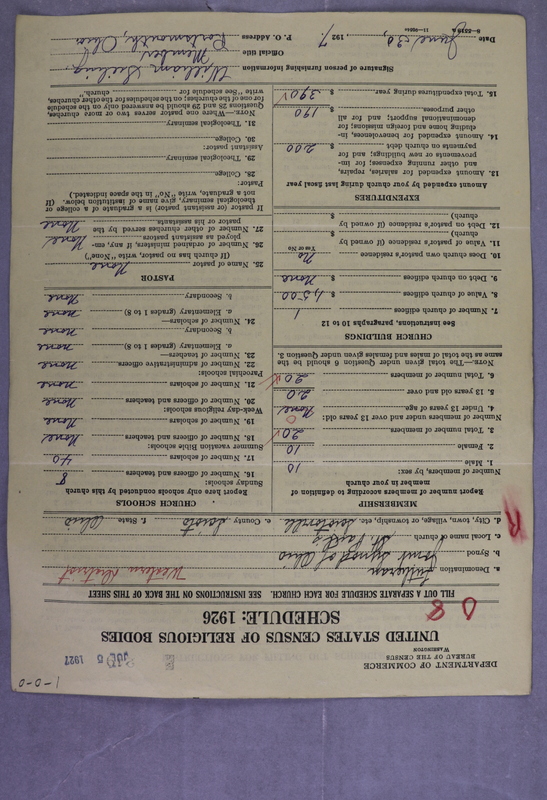 1-0-0
DEPARTMENT OF COMMERCE
BUREAU OF THE CENSUS
WASHINGTON
JUL 5 1927
UNITED STATES CENSUS OF RELIGIOUS BODIES
SCHEDULE: 1926
FILL OUT A SEPARATE SCHEDULE FOR EACH CHURCH. SEE INSTRUCTIONS ON THE BACK OF THIS SHEET
a. Denomination Lutheran Western District
b. Synod Joint Synod of Ohio
c. Local name of church St. Paul's
d. City, town, village, or township, etc. e. County Scioto f. State Ohio
MEMBERSHIP
Report number of members according to definition of
member in your church
Number of members, by sex:
1. Male 10
2. Female 10
3. Total number of members 20
Number of members under and over 13 years old:
4. Under 13 years of age None
5. 13 years old and over 20
6. Total number of members 20
NOTE.—The total given under Question 6 should be the
same as the total of males and females given under Question 3.
CHURCH BUILDINGS
See Instructions, paragraphs 10 to 12
7. Number of church edifices 1
8. Value of church edifices $ 1,500
9. Debt on church edifices $ None
10. Does church own pastor's residence No
Yes or No
11. Value of pastor's residence (if owned by
church) $
12. Debt on pastor's residence (if owned by
church) $
EXPENDITURES
Amount expended by your church during last fiscal year
13. Amount expended for salaries, repairs,
and other running expenses; for im-
provements or new buildings; and for
payments on church debt $ 200
14. Amount expended for benevolences, in-
cluding home and foreign missions; for
denominational support; and for all
other purposes $ 190
15. Total expenditures during year $ 390
CHURCH SCHOOLS
Report here only schools conducted by this church
Sunday schools:
16. Number of officers and teachers 8
17. Number of scholars 40
Summer vacation Bible schools:
18. Number of officers and teachers None
19. Number of scholars None
Week-day religious schools:
20. Number of officers and teachers None
21. Number of scholars None
Parochial schools:
22. Number of administrative officers None
23. Number of teachers—
a. Elementary (grades 1 to 8) None
b. Secondary None
24. Number of scholars—
a. Elementary (grades 1 to 8) None
b. Secondary None
PASTOR
25. Name of pastor None
(If church has no pastor write "None")
26. Number of ordained ministers, if any, em-
ployed as assistant pastors None
27. Number of other churches served by the
pastor or his assistants None
If pastor (or assistant pastor) is a graduate of a college or
theological seminary, give name of institution below. (If
not a graduate, write "No" in the space indicated.)
Pastor:
28. College
29. Theological seminary
Assistant pastor:
30. College
31. Theological seminary
NOTE.—Where one pastor serves two or more churches,
Questions 28 and 29 should be answered only on the schedule
for one of the churches; on the schedules for the other churches,
write "See schedule for church."
Signature of person furnishing information William
Official title Member
P. O. Address Portsmouth, Ohio
Date June 30, 1927.